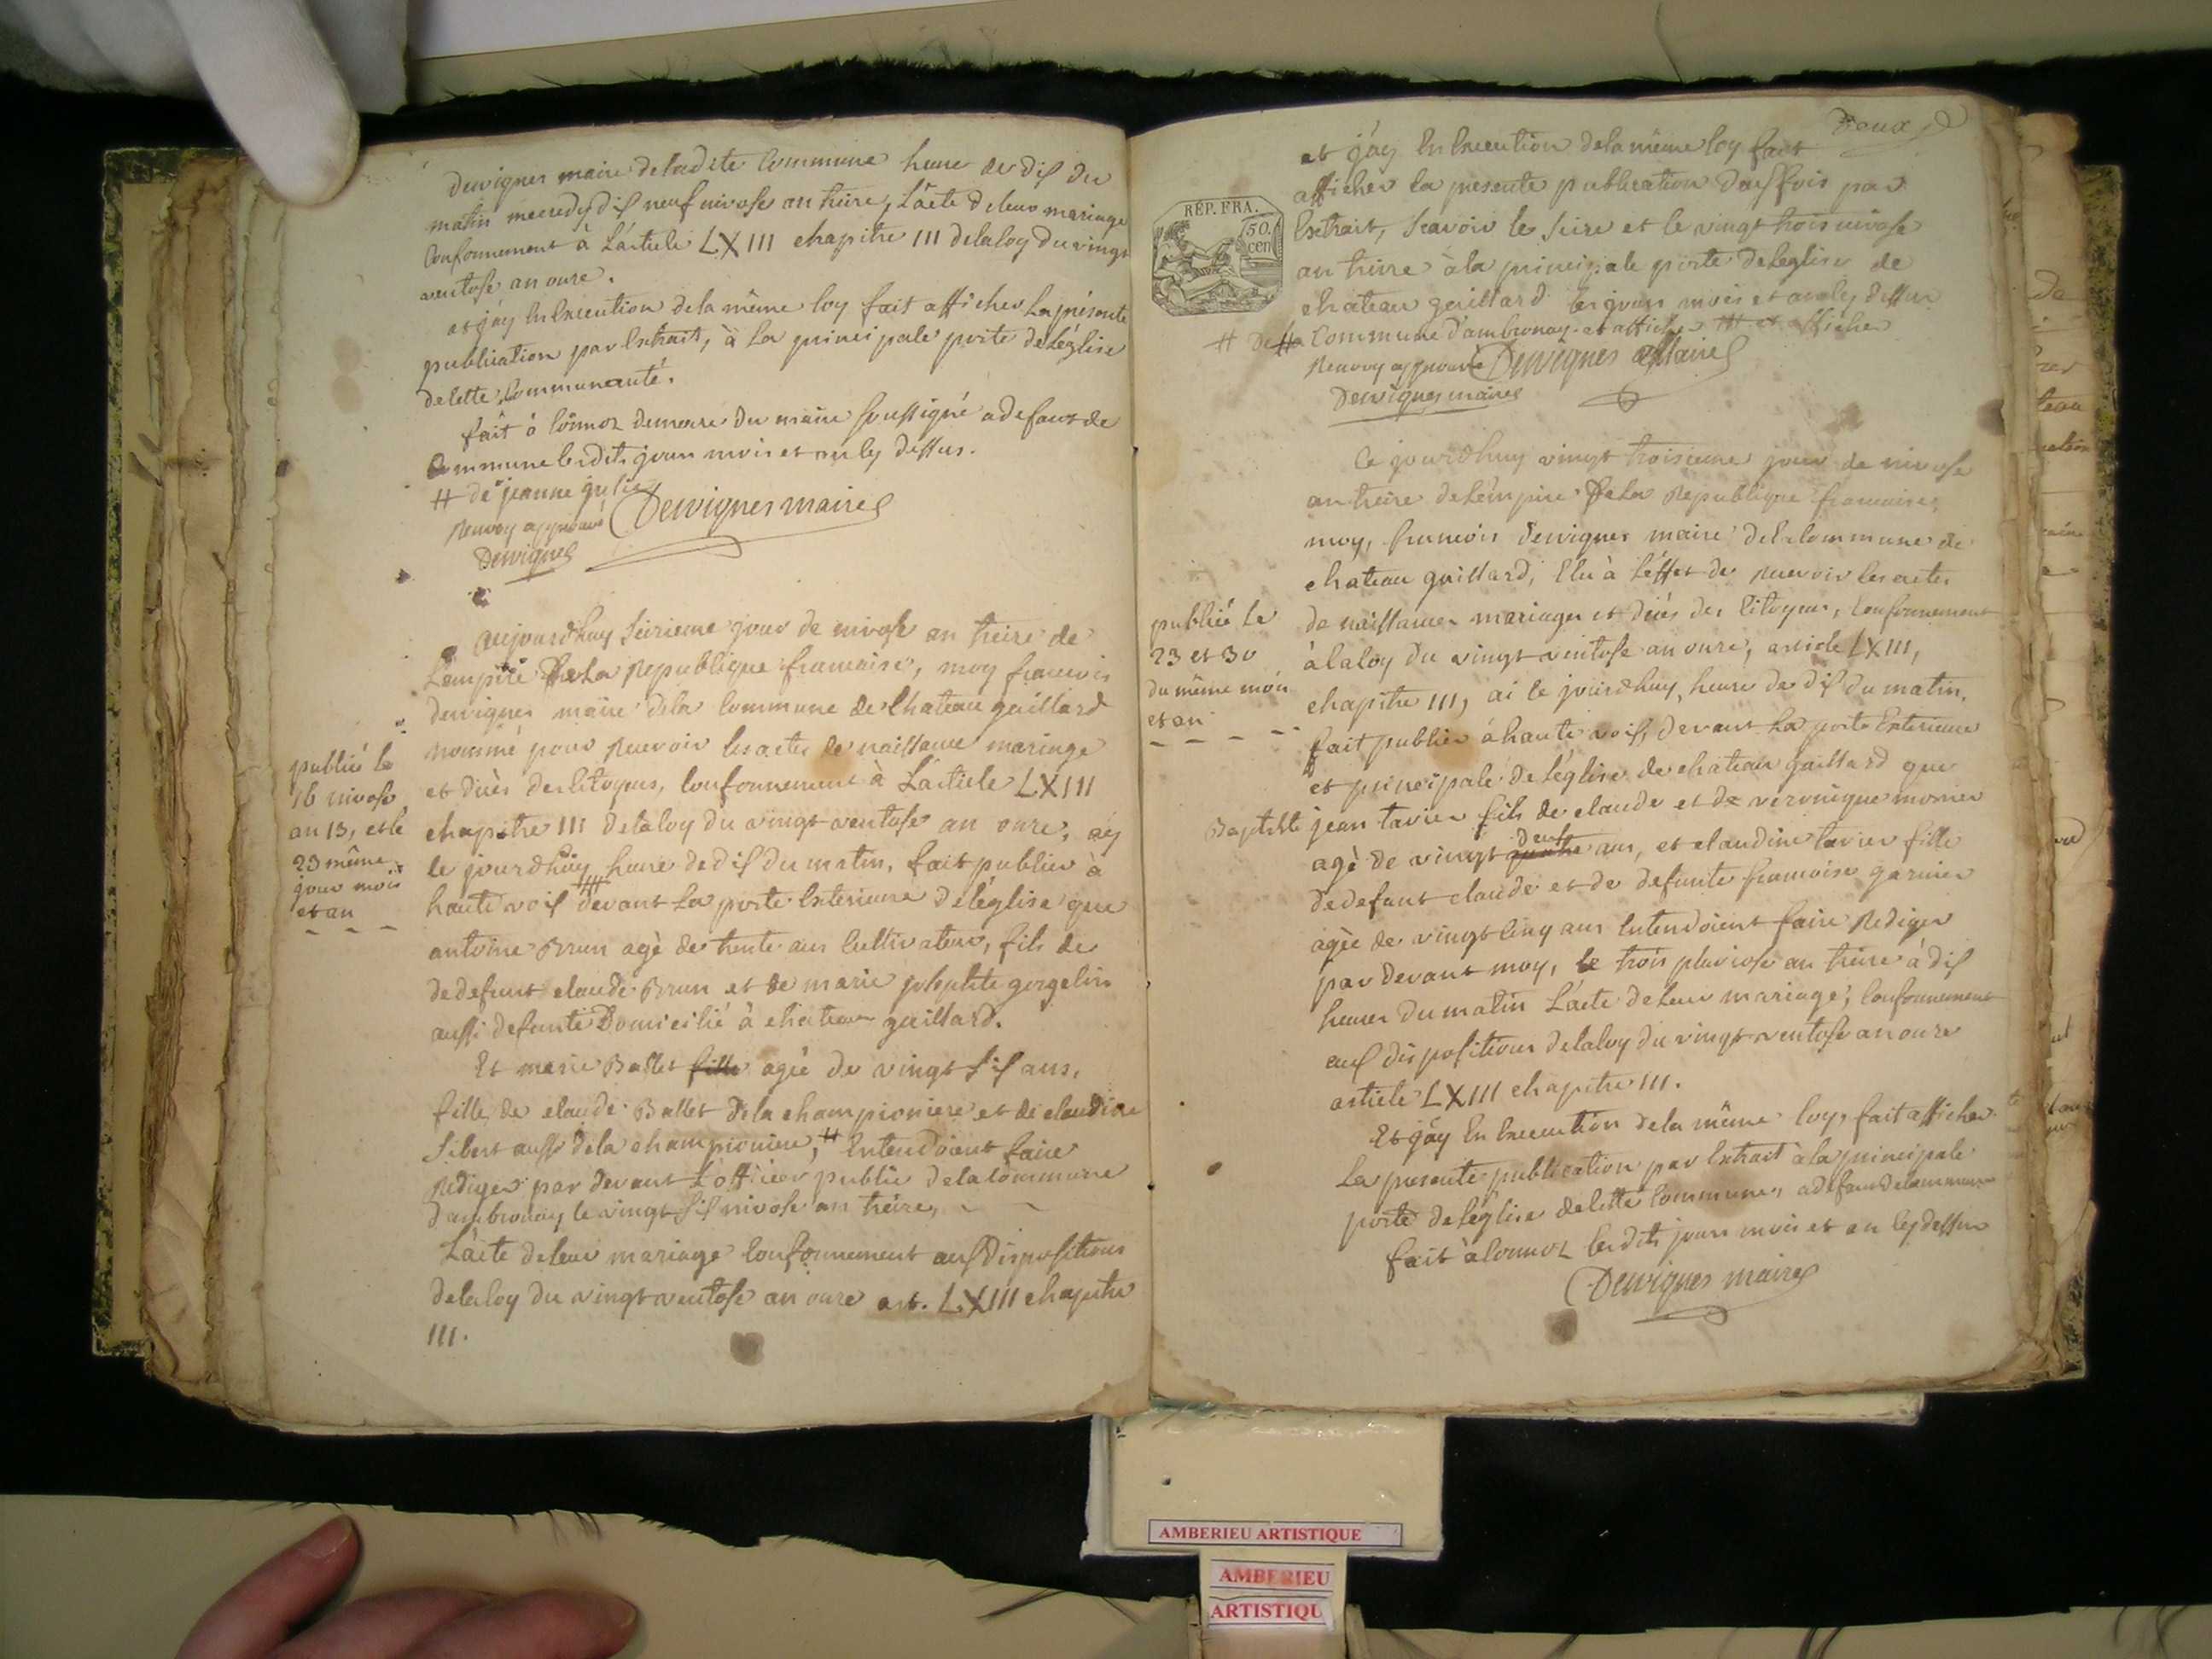 Dervignes maire de ladite Commune heure de dix du
matin mecredy dix neuf nivose an treize, L'acte de leur mariage
Conformement à L'article LXIII chapitre III de la loy du vingt
ventose an onze.
et j'ay En Execution de la même loy fait afficher La présente
publication par Extrait, à La principale porte de L'église
de cette Communauté.
fait à demeure du maire soussigné a defaut de
Commune lesdits jour mois et an cy dessus.
# de jeanne
Renvoy approuvé Dervignes maire
Dervignes
aujourdhuy seizieme jour de nivose an treize de
L'empire De La Republique francaise, moy francois
dervignes maire de la Commune de Chateau gaillard
nommé pour Recevoir les actes de naissance mariage
et décès des Citoyens, Conformement à L'article LXIII
chapitre III de la loy du vingt ventose an onze, ay
le jourdhuy heure de dix du matin, fait publier à
haute voix devant La porte Exterieure de l'église que
antoine Brun agé de trente ans Cultivateur, fils de
de defunt claude Brun et de marie gergelin
aussi defunte Domicilié à chateau gaillard.
Et marie Ballet fille agée de vingt six ans,
fille de claude Ballet de la championiere et de claudine
Sibert aussi de la championiere, # Entendoient faire
Rediger par devant L'officier public de la Commune
d'ambronay le vingt six nivose an treize,
L'acte de leur mariage Conformement aux Dispositions
de la loy du vingt ventose an onze art. LXIII chapitre
III.
publié le
16 nivose
an 13, et le
23 même
jour mois
et an
Deux
et j'ay En Execution de la même loy fait
afficher La presente publication deux fois par
Extrait, Scavoir le seize et le vingt trois nivose
an treize à la principale porte de L'eglise de
chateau gaillard les jours mois et an cy dessus
RÉP. FRA.
50.
cen
# De la Commune d'ambronay et affiché et afficher
Renvoy approuvé Dervignes Maire
Dervignes maire
Ce jourdhuy vingt troisieme jour de nivose
an treize de L'empire De La Republique francaise,
moy, francois dervignes maire de la Commune de
chateau gaillard, Elu à L'effet de Recevoir les actes
de naissances mariages et décès des Citoyens, Conformement
à la loy du vingt ventose an onze, article LXIII,
chapitre III, ai le jourdhuy, heure de dix du matin,
fait publier à haute voix, devant La porte Exterieure
et principale de L'église de chateau gaillard que
Baptiste jean tavier fils de claude et de veronique monier
deux
agé de vingt quatre ans, et claudine tavier fille
de defunt claude et de defunte francoise garnier
agée de vingt cinq ans Entendoient faire Rediger
par devant moy, le trois pluviose an treize à dix
heures du matin L'acte de Leur mariage, Conformement
aux dispositions de la loy du vingt ventose an onze
article LXIII chapitre III.
Et j'ay En Execution de la même loy, fait afficher
La presente publication par Extrait à la principale
porte de L'église de cette Commune, a defaut de commune
fait à lesdits jours mois et an cy dessus
Dervignes maire
publié le
23 et 30
du même mois
et an
AMBERIEU ARTISTIQUE
AMBERIEU
ARTISTIQU